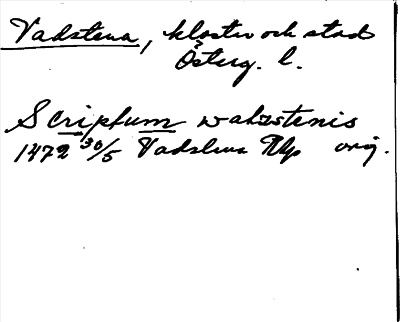 Vadstena, kloster och stad
Österg. l.
Scriptum wahzstenis
1472 30/5 Vadstena Rlp orig.